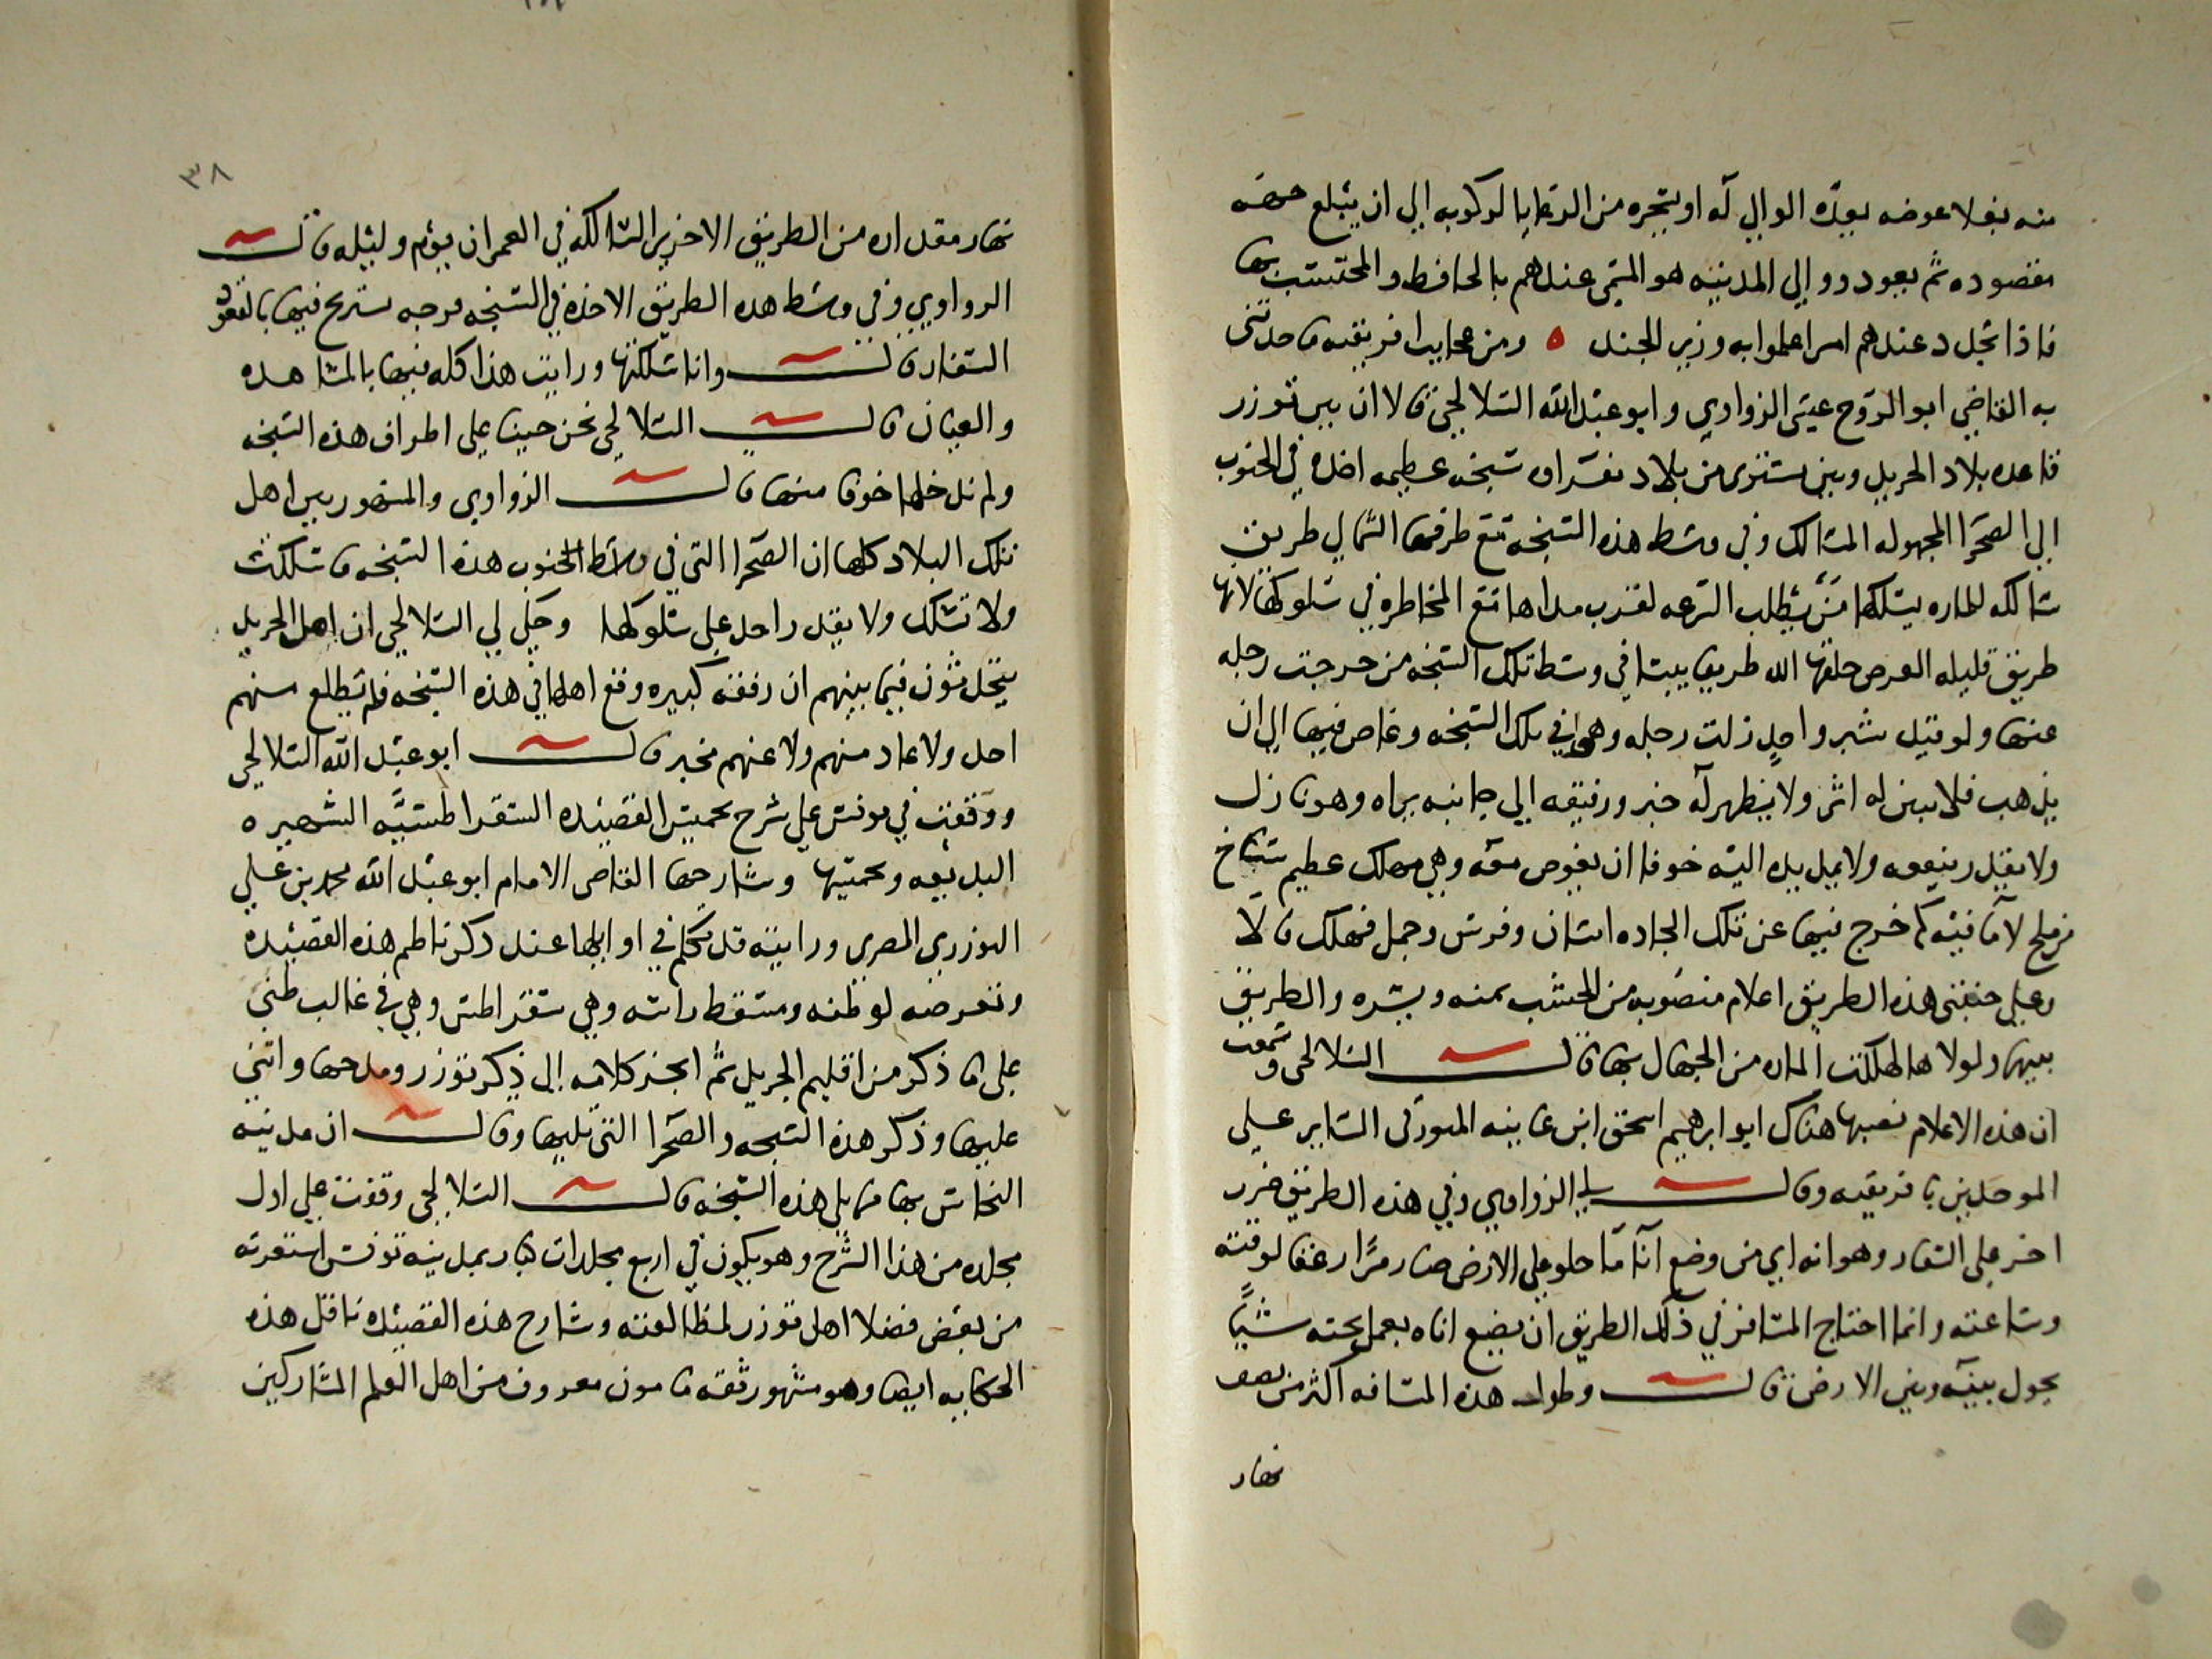 منه بغلا عوضه يعيده الوالي له او يتخيره من الدعايا لركوبه الي ان يبلغ جهة
مقصوده ثم يعود دوو الي المدينه هو المسمى عندهم بالحافظ والمحتسب بها
فاذا تجدد عندهم امر اعلموا به وزير الجند ه ومن عجايب افريقيه ما حدثني
به القاضي ابو الروح عيسى الزواوي وابو عبد الله السلالجي قالا ان بين توزر
قاعده بلاد الجريد وبين بشترى من بلاد نفزاوه سبخه عظيمه اخذه في الجنوب
الي الصحرا المجهوله المسالك وفي وسط هذه السبخه مع طرفها الشمالي طريق
سالكه للماره يسلكها من يطلب السرعه لقرب مداها مع المخاطره في سلوكها لانها
طريق قليله العرض خلقها الله طريقا يبسا في وسط تلك السبخه من خرجت رجله
عنها ولو قيد شبر واحد زلت رجله وهوى في تلك السبخه وغاص فيها الي ان
يذهب فلا يبين له اثر ولا يظهر له خبر ورفيقه الي جانبه يراه وهو نازل
ولا يقدر ينفعه ولا يمد يده اليه خوفا ان يغوص معه وهي مهلك عظيم سباخ
من ملح لا ما فيه كم خرج فيها عن تلك الجاده انسان وفرس وجمل فهلك قالا
وعلي جنبتي هذه الطريق اعلام منصوبه من الخشب يمنه ويسره والطريق
بينها ولولاها لهلكت الماره من الجهال بها قال السلالجي وسمعت
ان هذه الاعلام نصبها هناك ابو ابراهيم اسحق ابن غانيه الميورقي الثاير علي
الموحدين بافريقيه وقال لي الزواوي وفي هذه الطريق ضرر
اخر علي السفار وهو انه اي من وضع انا ما حلو علي الارض صار مرا زعاقا لوقته
وساعته وانما احتاج المسافر في ذلك الطريق ان يضع اناه يعمل تحته شيًا
يحول بينه وبين الارض قال وطول هذه المسافه اكثر من نصف
نهار
٣٨
نهار مقداره من الطريق الاخرى السالكه في العمران يوم وليله قال
الزواوي وفي وسط هذه الطريق الاخذه في السبخه مرحه يستريح فيها بالقعود
السفار قال وانا سلكتها ورايت هذا كله فيها بالمشاهده
والعيان قال السلالجي نحن جينا علي اطراف هذه السبخه
ولم ندخلها خوفا منها قال الزواوي والمشهور بين اهل
تلك البلاد كلها ان الصحرا التي في وسط الجنوب هذه السبخه ما سلكت
ولا تسلك ولا يقدر احد علي سلوكها وحكي لي السلالجي ان اهل الجريد
يتحدثون فيما بينهم ان رفقه كبيره وقع اهلها في هذه السبخه فلم يطلع منهم
احد ولا عاد منهم ولا عنهم مخبر قال ابو عبد الله السلالجي
ووقفت في تونس علي شرح تخميس القصيده الشقراطسيه الشهيره
البديعه وتخميسها وشارحها القاضي الامام ابو عبد الله محمد بن علي
التوزري المصري ورايته قد تكلم في اوايلها عند ذكر ناظم هذه القصيده
وتعرضه لوطنه ومسقط راسه وهي شقراطس وهي في غالب ظني
علي ما ذكر من اقليم الجريد ثم انجر كلامه الي ذكر توزر ومدحها واثني
عليها وذكر هذه السبخه والصحرا التي تليها وقال ان مدينه
النحاس بها مما يلي هذه السبخه قال السلالجي وقفت علي اول
مجلده من هذا الشرح وهو يكون في اربع مجلدات كبار بمدينه تونس استعرته
من بعض فضلا اهل توزر لمطالعته وشارح هذه القصيده ناقل هذه
الحكايه ايضا وهو مشهور ثقه مامون معروف من اهل العلم المشاركين